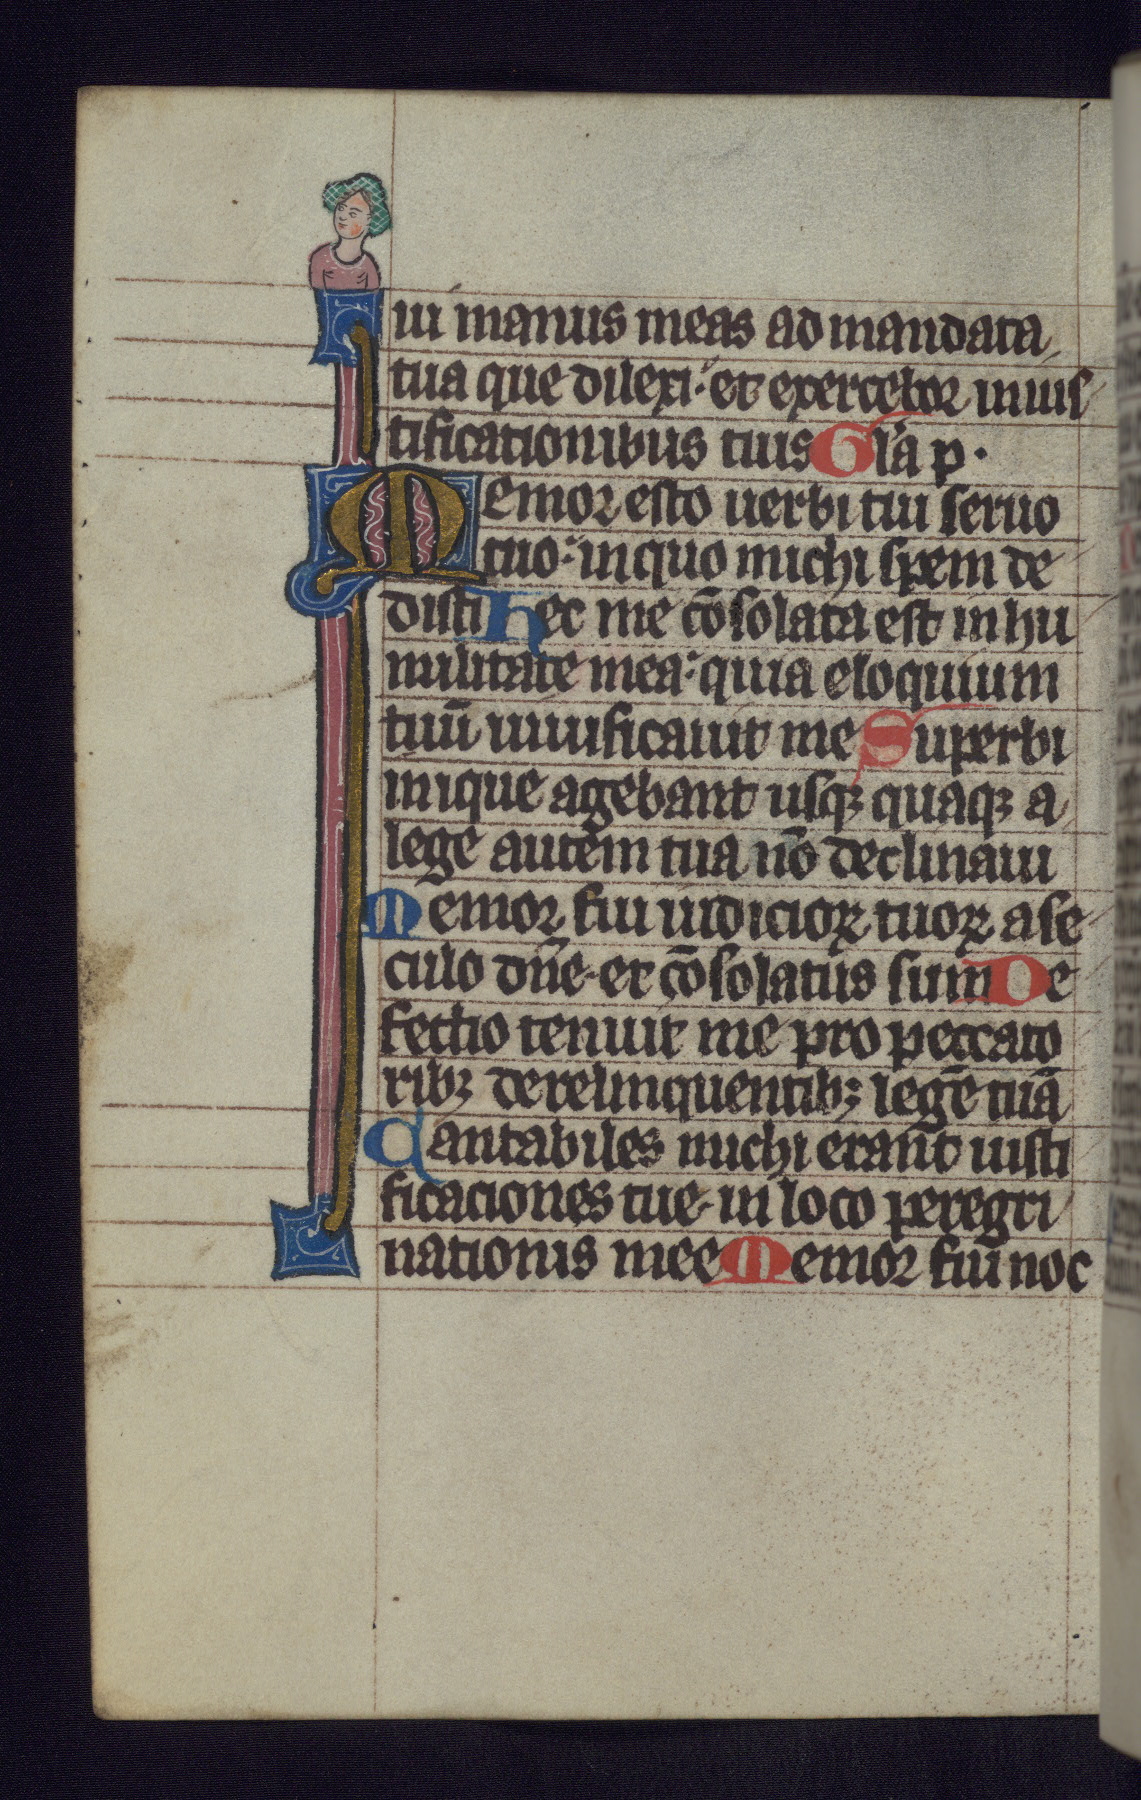 ui manus meas ad mandata
tua que dilexi et exercebor in ius
tificationibus tuis Gl̄a p.
Memor esto uerbi tui seruo
tuo in quo michi spem de
disti Hec me cōsolata est in hu
militate mea quia eloquium
tuū uiuificauit me Superbi
inique agebant usqꝫ quaqꝫ a
lege autem tua nō declinaui
Memor fui iudicioꝝ tuoꝝ a se
culo dn̄e et cōsolatus sum De
fectio tenuit me pro peccato
ribꝫ derelinquentibꝫ legē tuā
Cantabiles michi erant iusti
ficaciones tue in loco peregri
nationis mee Memor fui noc